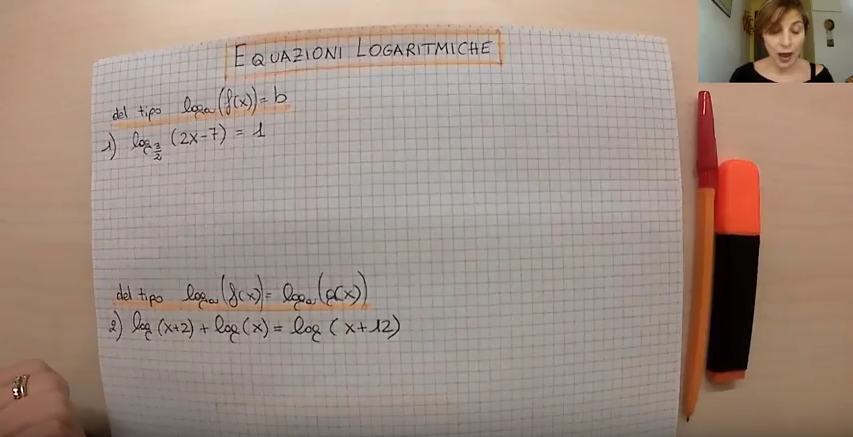 EQUAZIONI LOGARITMICHE
del tipo logₐ(f(x))=b
1) log_{3/2} (2x-7) = 1
del tipo logₐ(f(x))= logₐ(g(x))
2) log(x+2) + log(x) = log (x+12)